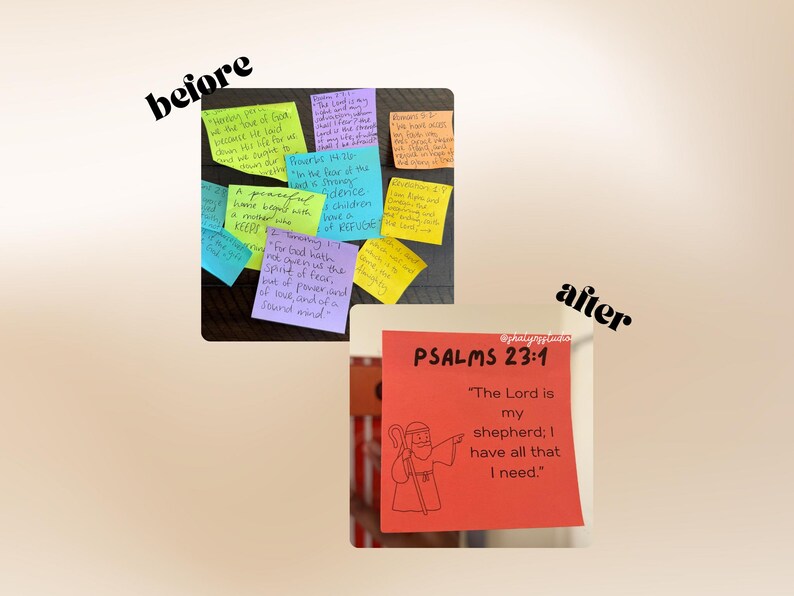 before
"Hereby perc
we the love of God,
because He laid
down His life for us:
and we ought to
down our
brethr
Psalm 27:1
"The Lord is my
light and my
salvation; whom
shall I fear? the
Lord is the strength
of my life; of whom
shall I be afraid?"
Romans 5:2
"We have access
by faith into
this grace wherein
we stand, and
rejoice in hope of
the glory of God
Proverbs 14:26
"In the fear of the
Lord is strong
fidence
s children
have a
of REFUGE
Revelation 1:8
I am Alpha and
Omega, the
beginning and
the ending, saith
the Lord, →
A peaceful
home begins with
a mother who
KEEPS
2 Timothy 1:7
"For God hath
not given us the
spirit of fear,
but of power, and
of love, and of a
sound mind."
which is, and
which was, and
which is to
come, the
Almighty
after
@shalynsstudio
PSALMS 23:1
"The Lord is
my
shepherd; I
have all that
I need."